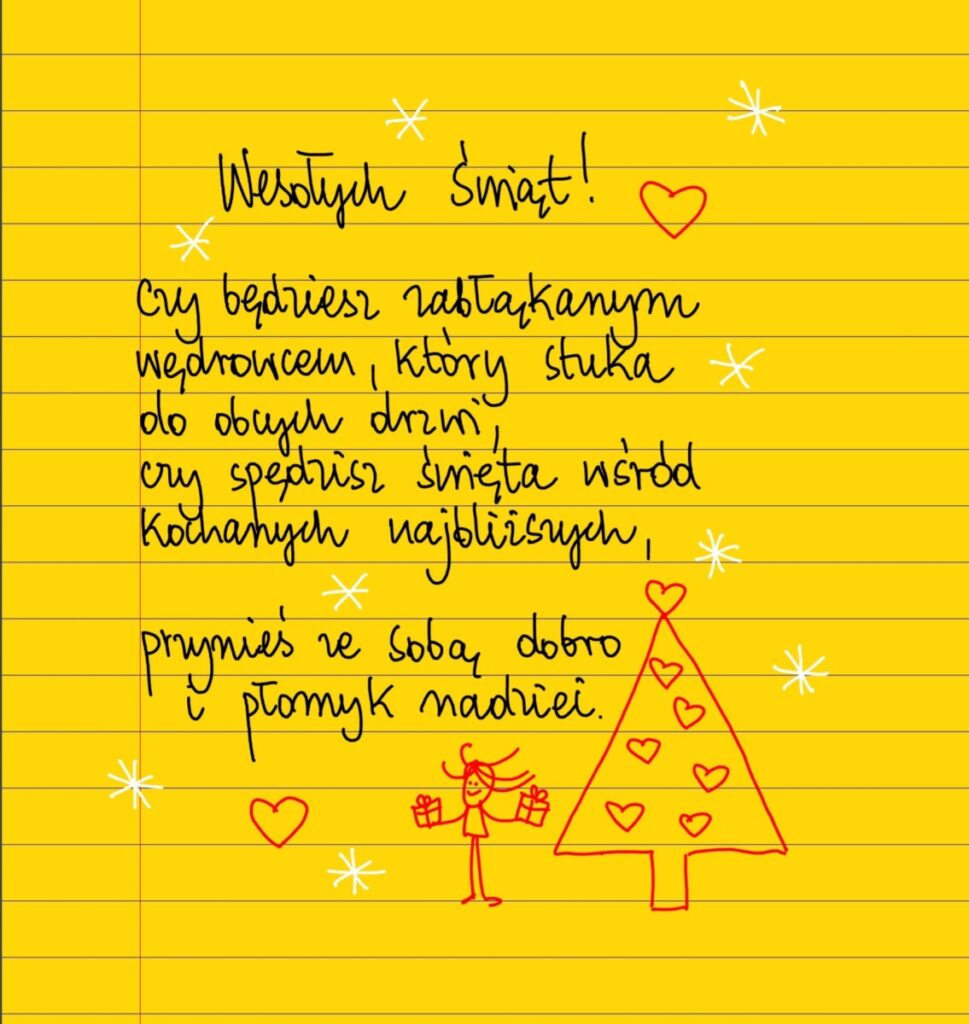 Wesołych Świąt!
Czy będziesz zabłąkanym
wędrowcem, który stuka
do obcych drzwi,
czy spędzisz święta wśród
kochanych najbliższych,
przynieś ze sobą dobro
i płomyk nadziei.